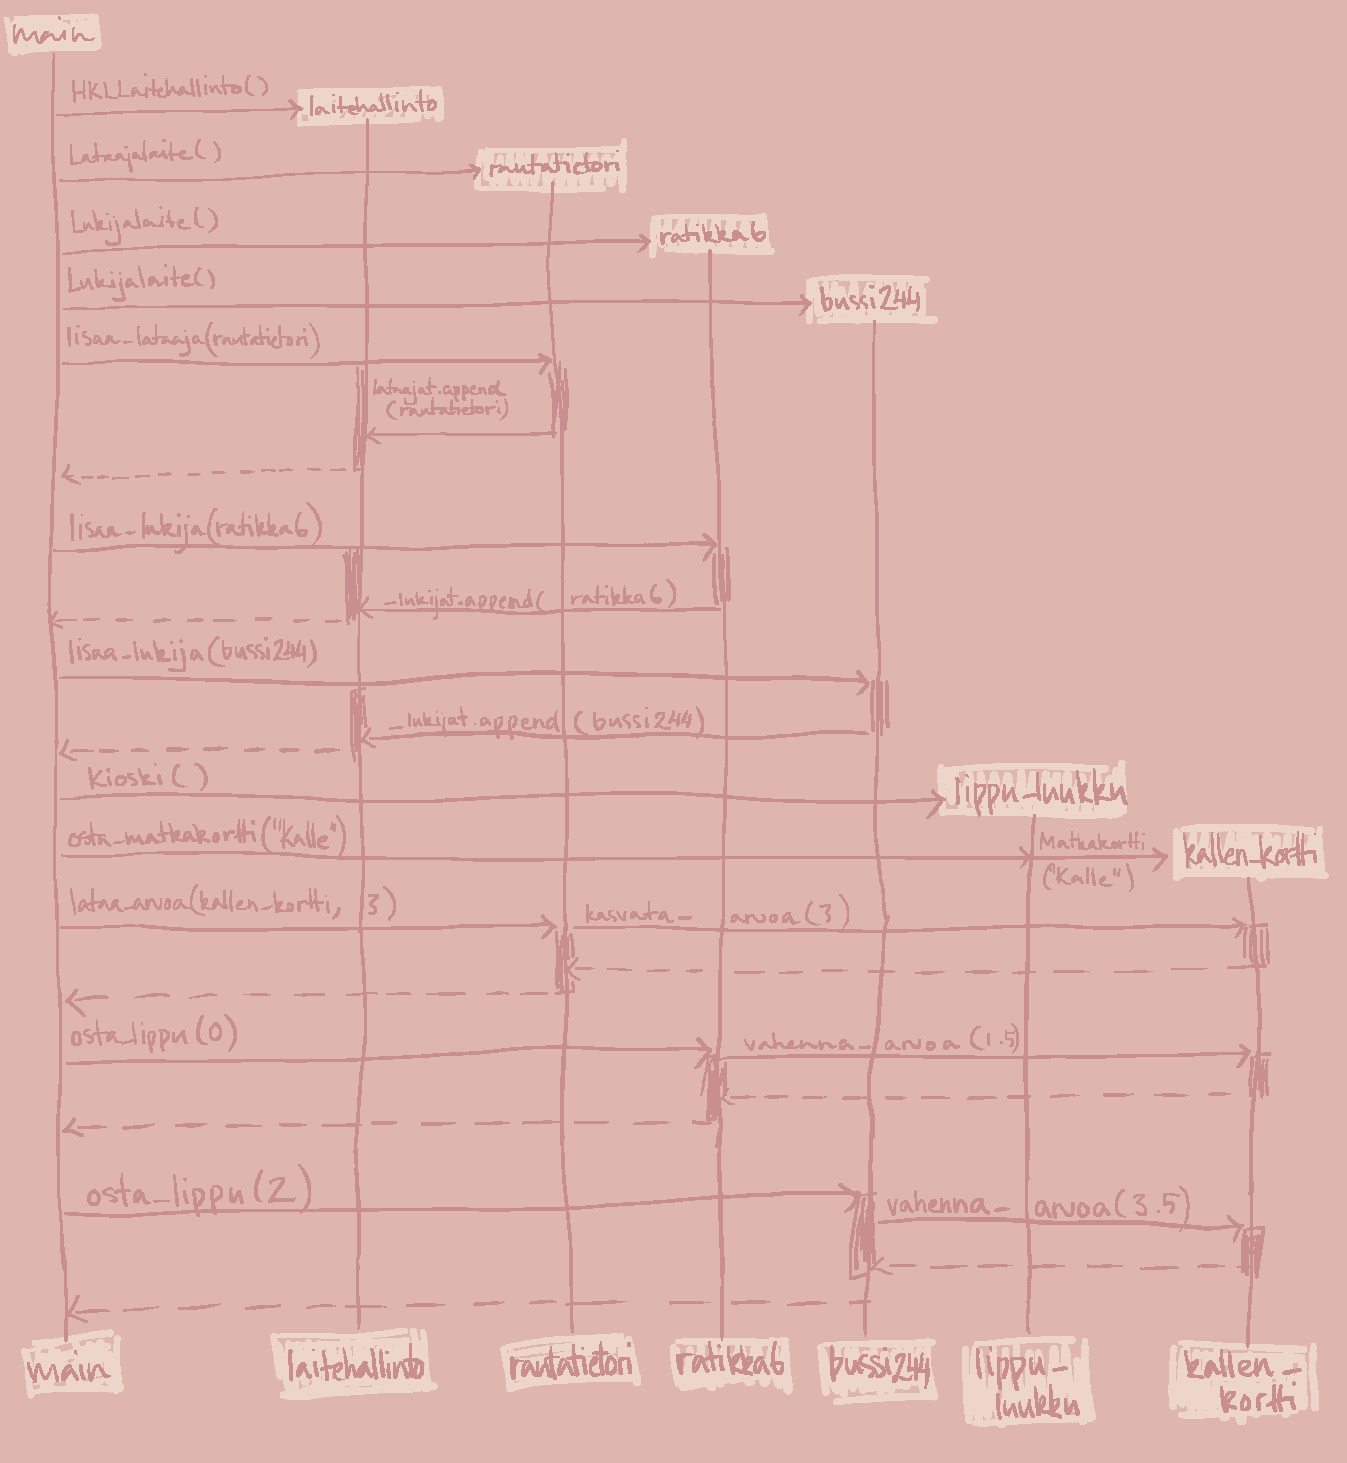 main
HKLLaitehallinto()
laitehallinto
Lataajalaite()
rautatietori
Lukijalaite()
ratikka6
Lukijalaite()
bussi244
lisaa_lataaja(rautatietori)
lataajat.append
(rautatietori)
lisaa_lukija(ratikka6)
_lukijat.append( ratikka6)
lisaa_lukija(bussi244)
_lukijat.append (bussi244)
Kioski()
lippu_luukku
osta_matkakortti("Kalle")
Matkakortti
("Kalle")
kallen_kortti
lataa_arvoa(kallen_kortti, 3)
kasvata_ arvoa(3)
osta_lippu(0)
vahenna_ arvoa(1.5)
osta_lippu(2)
vahenna_ arvoa(3.5)
main
laitehallinto
rautatietori
ratikka6
bussi244
lippu_
luukku
kallen_
kortti